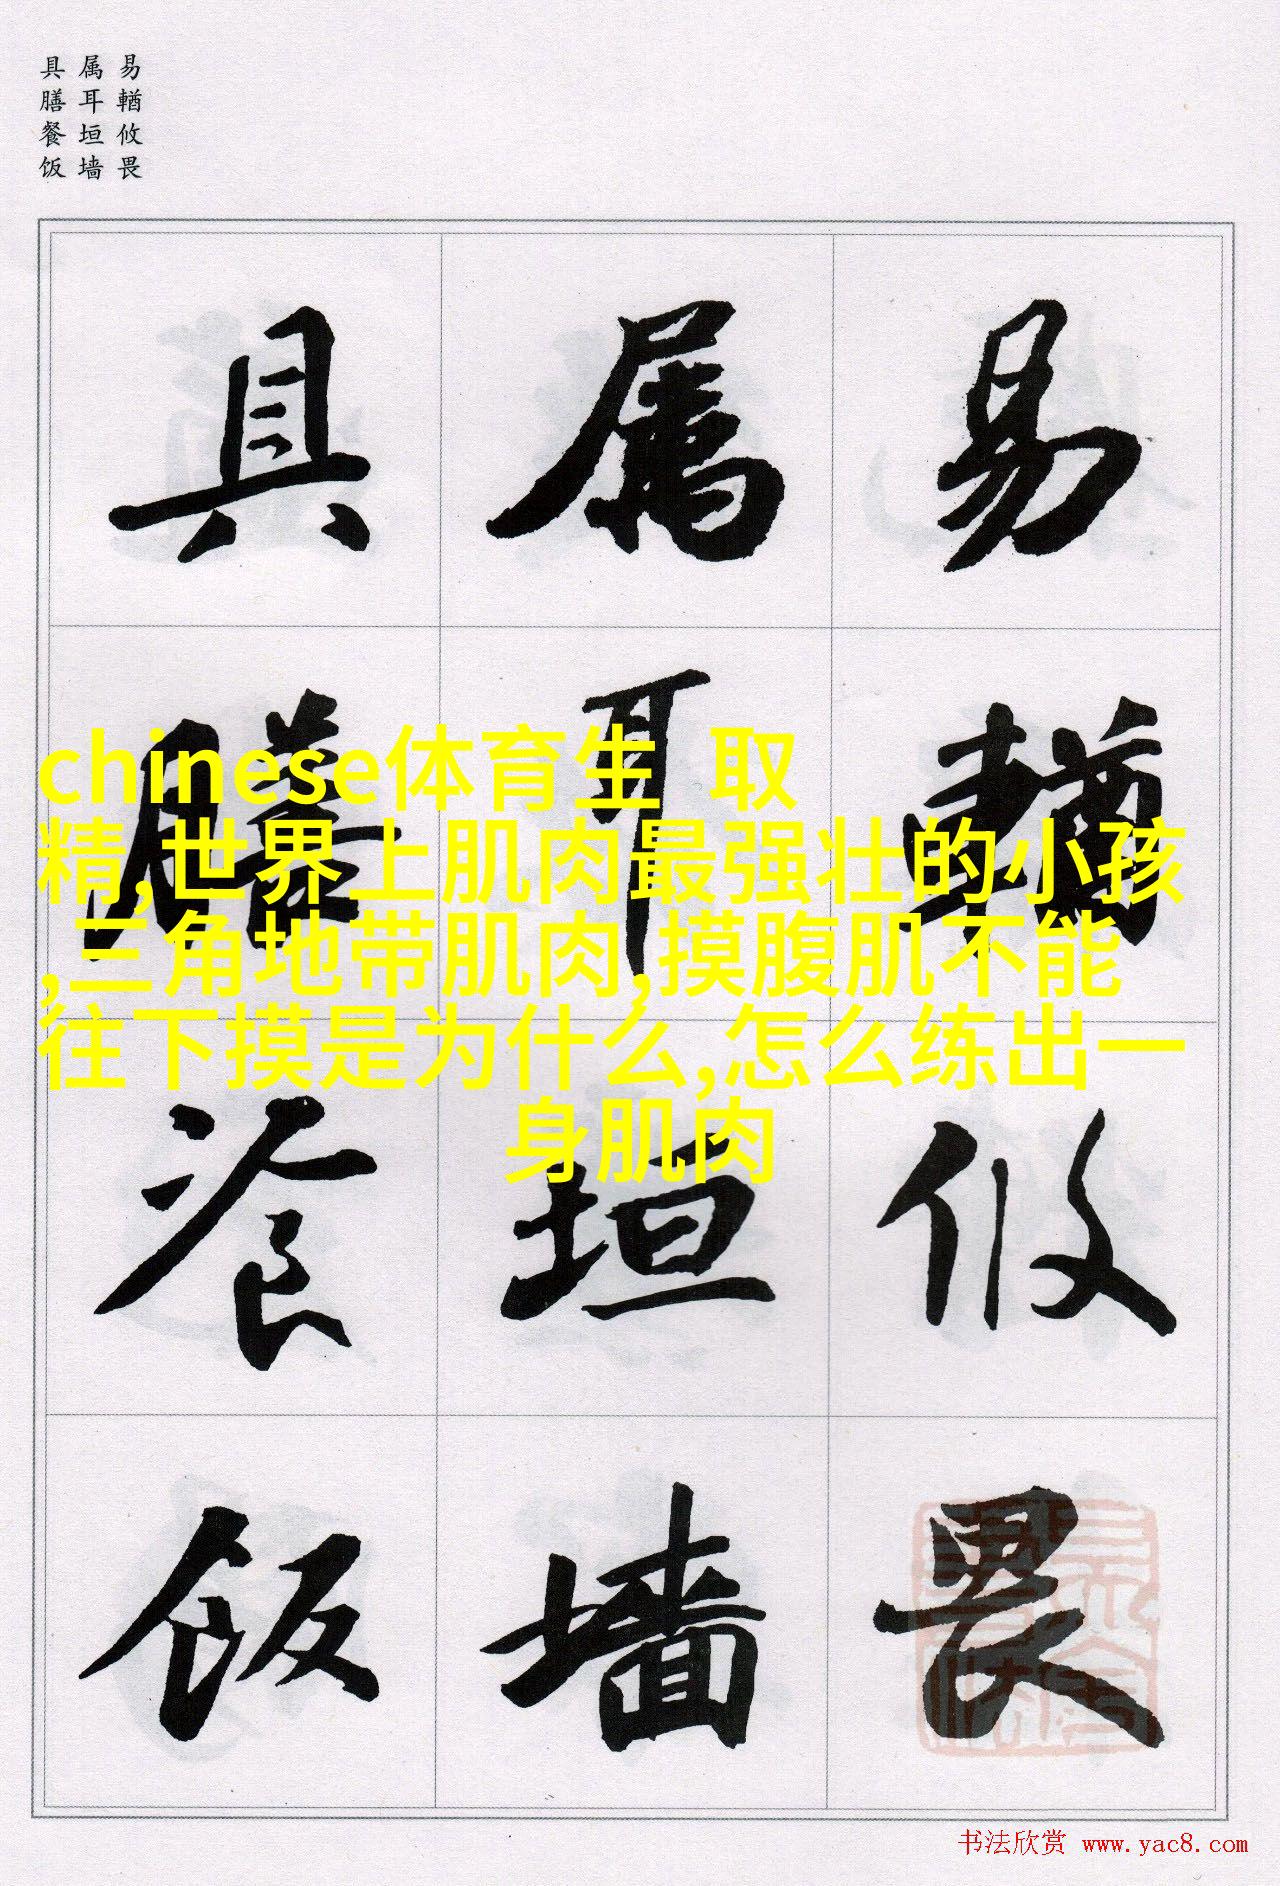 易輶攸畏
属耳垣墙
具膳餐饭
易輶攸畏
属耳垣墙
具膳飡饭
chinese体育生 取
精,世界上肌肉最强壮的小孩
,三角地带肌肉,摸腹肌不能
往下摸是为什么,怎么练出一
身肌肉
书法欣赏 www.yac8.com